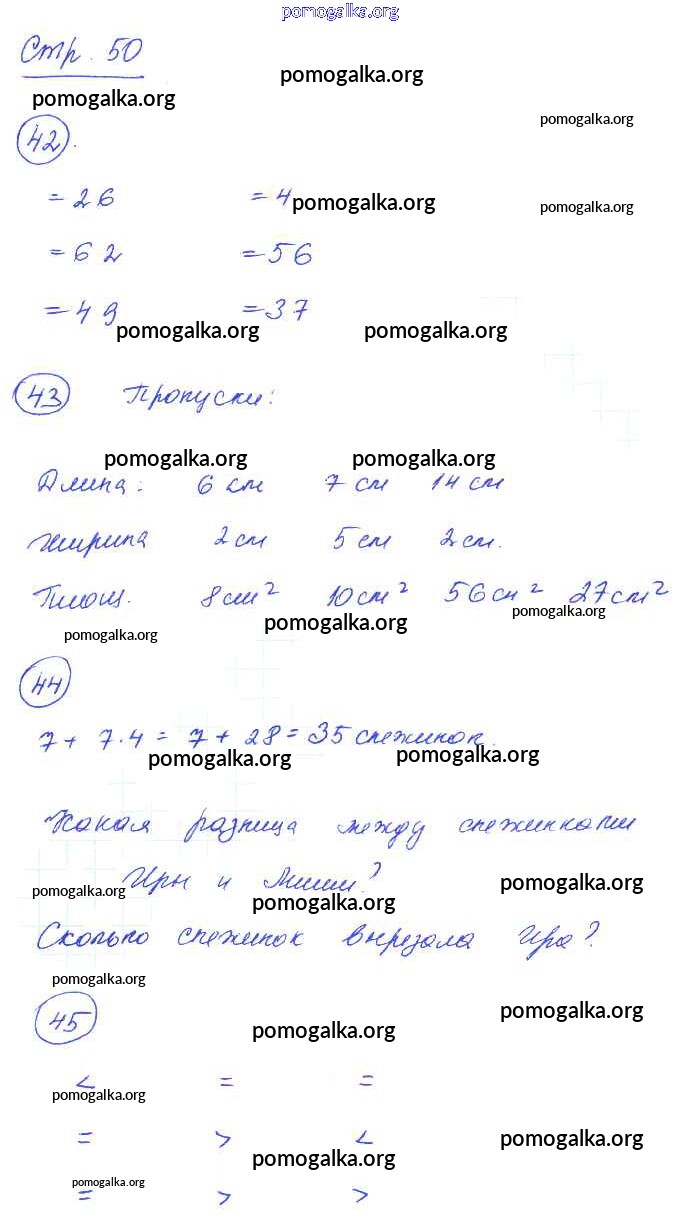 pomogalka.org
Стр. 50
pomogalka.org
pomogalka.org
pomogalka.org
42.
= 26 = 4 pomogalka.org pomogalka.org
= 62 = 56
= 49 = 37
pomogalka.org pomogalka.org
43 Пропуски:
pomogalka.org pomogalka.org
Длина: 6 см 7 см 14 см
ширина 2 см 5 см 2 см.
Площ. 8 см² 10 см² 56 см² 27 см²
pomogalka.org pomogalka.org pomogalka.org
44
7 + 7·4 = 7 + 28 = 35 снежинок.
pomogalka.org pomogalka.org
Какая разница между снежинками
Иры и Миши?
pomogalka.org pomogalka.org pomogalka.org
Сколько снежинок вырезала Ира?
pomogalka.org
45
pomogalka.org pomogalka.org
< = =
pomogalka.org
= > <
pomogalka.org pomogalka.org
pomogalka.org
= > >